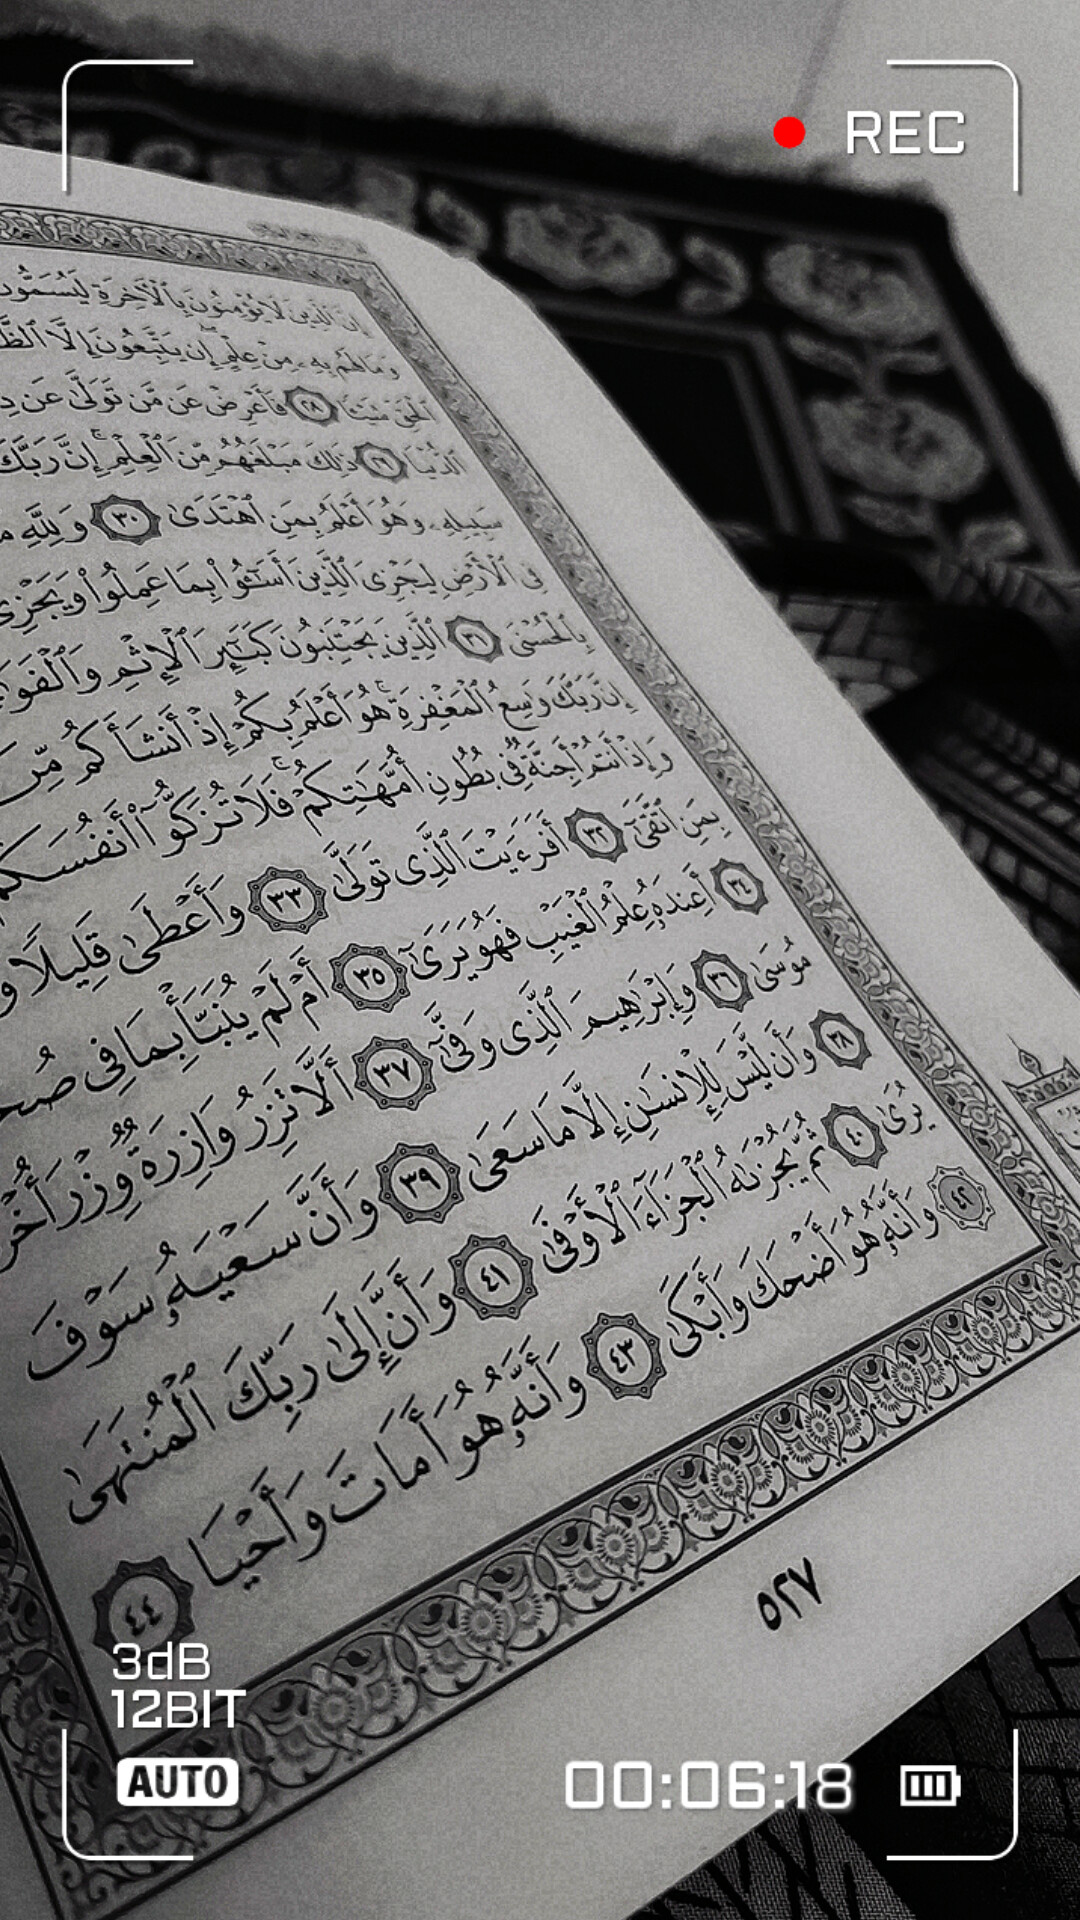 REC
إِنَّ ٱلَّذِينَ لَا يُؤْمِنُونَ بِٱلْـَٔاخِرَةِ لَيُسَمُّونَ
وَمَا لَهُم بِهِۦ مِنْ عِلْمٍ إِن يَتَّبِعُونَ إِلَّا ٱلظَّ
ٱلْحَقِّ شَيْـًٔا ٢٨ فَأَعْرِضْ عَن مَّن تَوَلَّىٰ عَن ذِ
ٱلدُّنْيَا ٢٩ ذَٰلِكَ مَبْلَغُهُم مِّنَ ٱلْعِلْمِ ۚ إِنَّ رَبَّكَ
سَبِيلِهِۦ وَهُوَ أَعْلَمُ بِمَنِ ٱهْتَدَىٰ ٣٠ وَلِلَّهِ مَ
فِى ٱلْأَرْضِ لِيَجْزِىَ ٱلَّذِينَ أَسَٰٓـُٔوا۟ بِمَا عَمِلُوا۟ وَيَجْزِىَ
بِٱلْحُسْنَى ٣١ ٱلَّذِينَ يَجْتَنِبُونَ كَبَٰٓئِرَ ٱلْإِثْمِ وَٱلْفَوَٰ
إِنَّ رَبَّكَ وَٰسِعُ ٱلْمَغْفِرَةِ ۚ هُوَ أَعْلَمُ بِكُمْ إِذْ أَنشَأَكُم مِّنَ
وَإِذْ أَنتُمْ أَجِنَّةٌ فِى بُطُونِ أُمَّهَٰتِكُمْ ۖ فَلَا تُزَكُّوٓا۟ أَنفُسَكُمْ
بِمَنِ ٱتَّقَىٰٓ ٣٢ أَفَرَءَيْتَ ٱلَّذِى تَوَلَّىٰ ٣٣ وَأَعْطَىٰ قَلِيلًا وَ
٣٤ أَعِندَهُۥ عِلْمُ ٱلْغَيْبِ فَهُوَ يَرَىٰٓ ٣٥ أَمْ لَمْ يُنَبَّأْ بِمَا فِى صُحُ
مُوسَىٰ ٣٦ وَإِبْرَٰهِيمَ ٱلَّذِى وَفَّىٰٓ ٣٧ أَلَّا تَزِرُ وَازِرَةٌ وِزْرَ أُخْرَ
٣٨ وَأَن لَّيْسَ لِلْإِنسَٰنِ إِلَّا مَا سَعَىٰ ٣٩ وَأَنَّ سَعْيَهُۥ سَوْفَ
يُرَىٰ ٤٠ ثُمَّ يُجْزَىٰهُ ٱلْجَزَآءَ ٱلْأَوْفَىٰ ٤١ وَأَنَّ إِلَىٰ رَبِّكَ ٱلْمُنتَهَىٰ
٤٢ وَأَنَّهُۥ هُوَ أَضْحَكَ وَأَبْكَىٰ ٤٣ وَأَنَّهُۥ هُوَ أَمَاتَ وَأَحْيَا ٤٤
٥٢٧
3dB
12BIT
AUTO
00:06:18